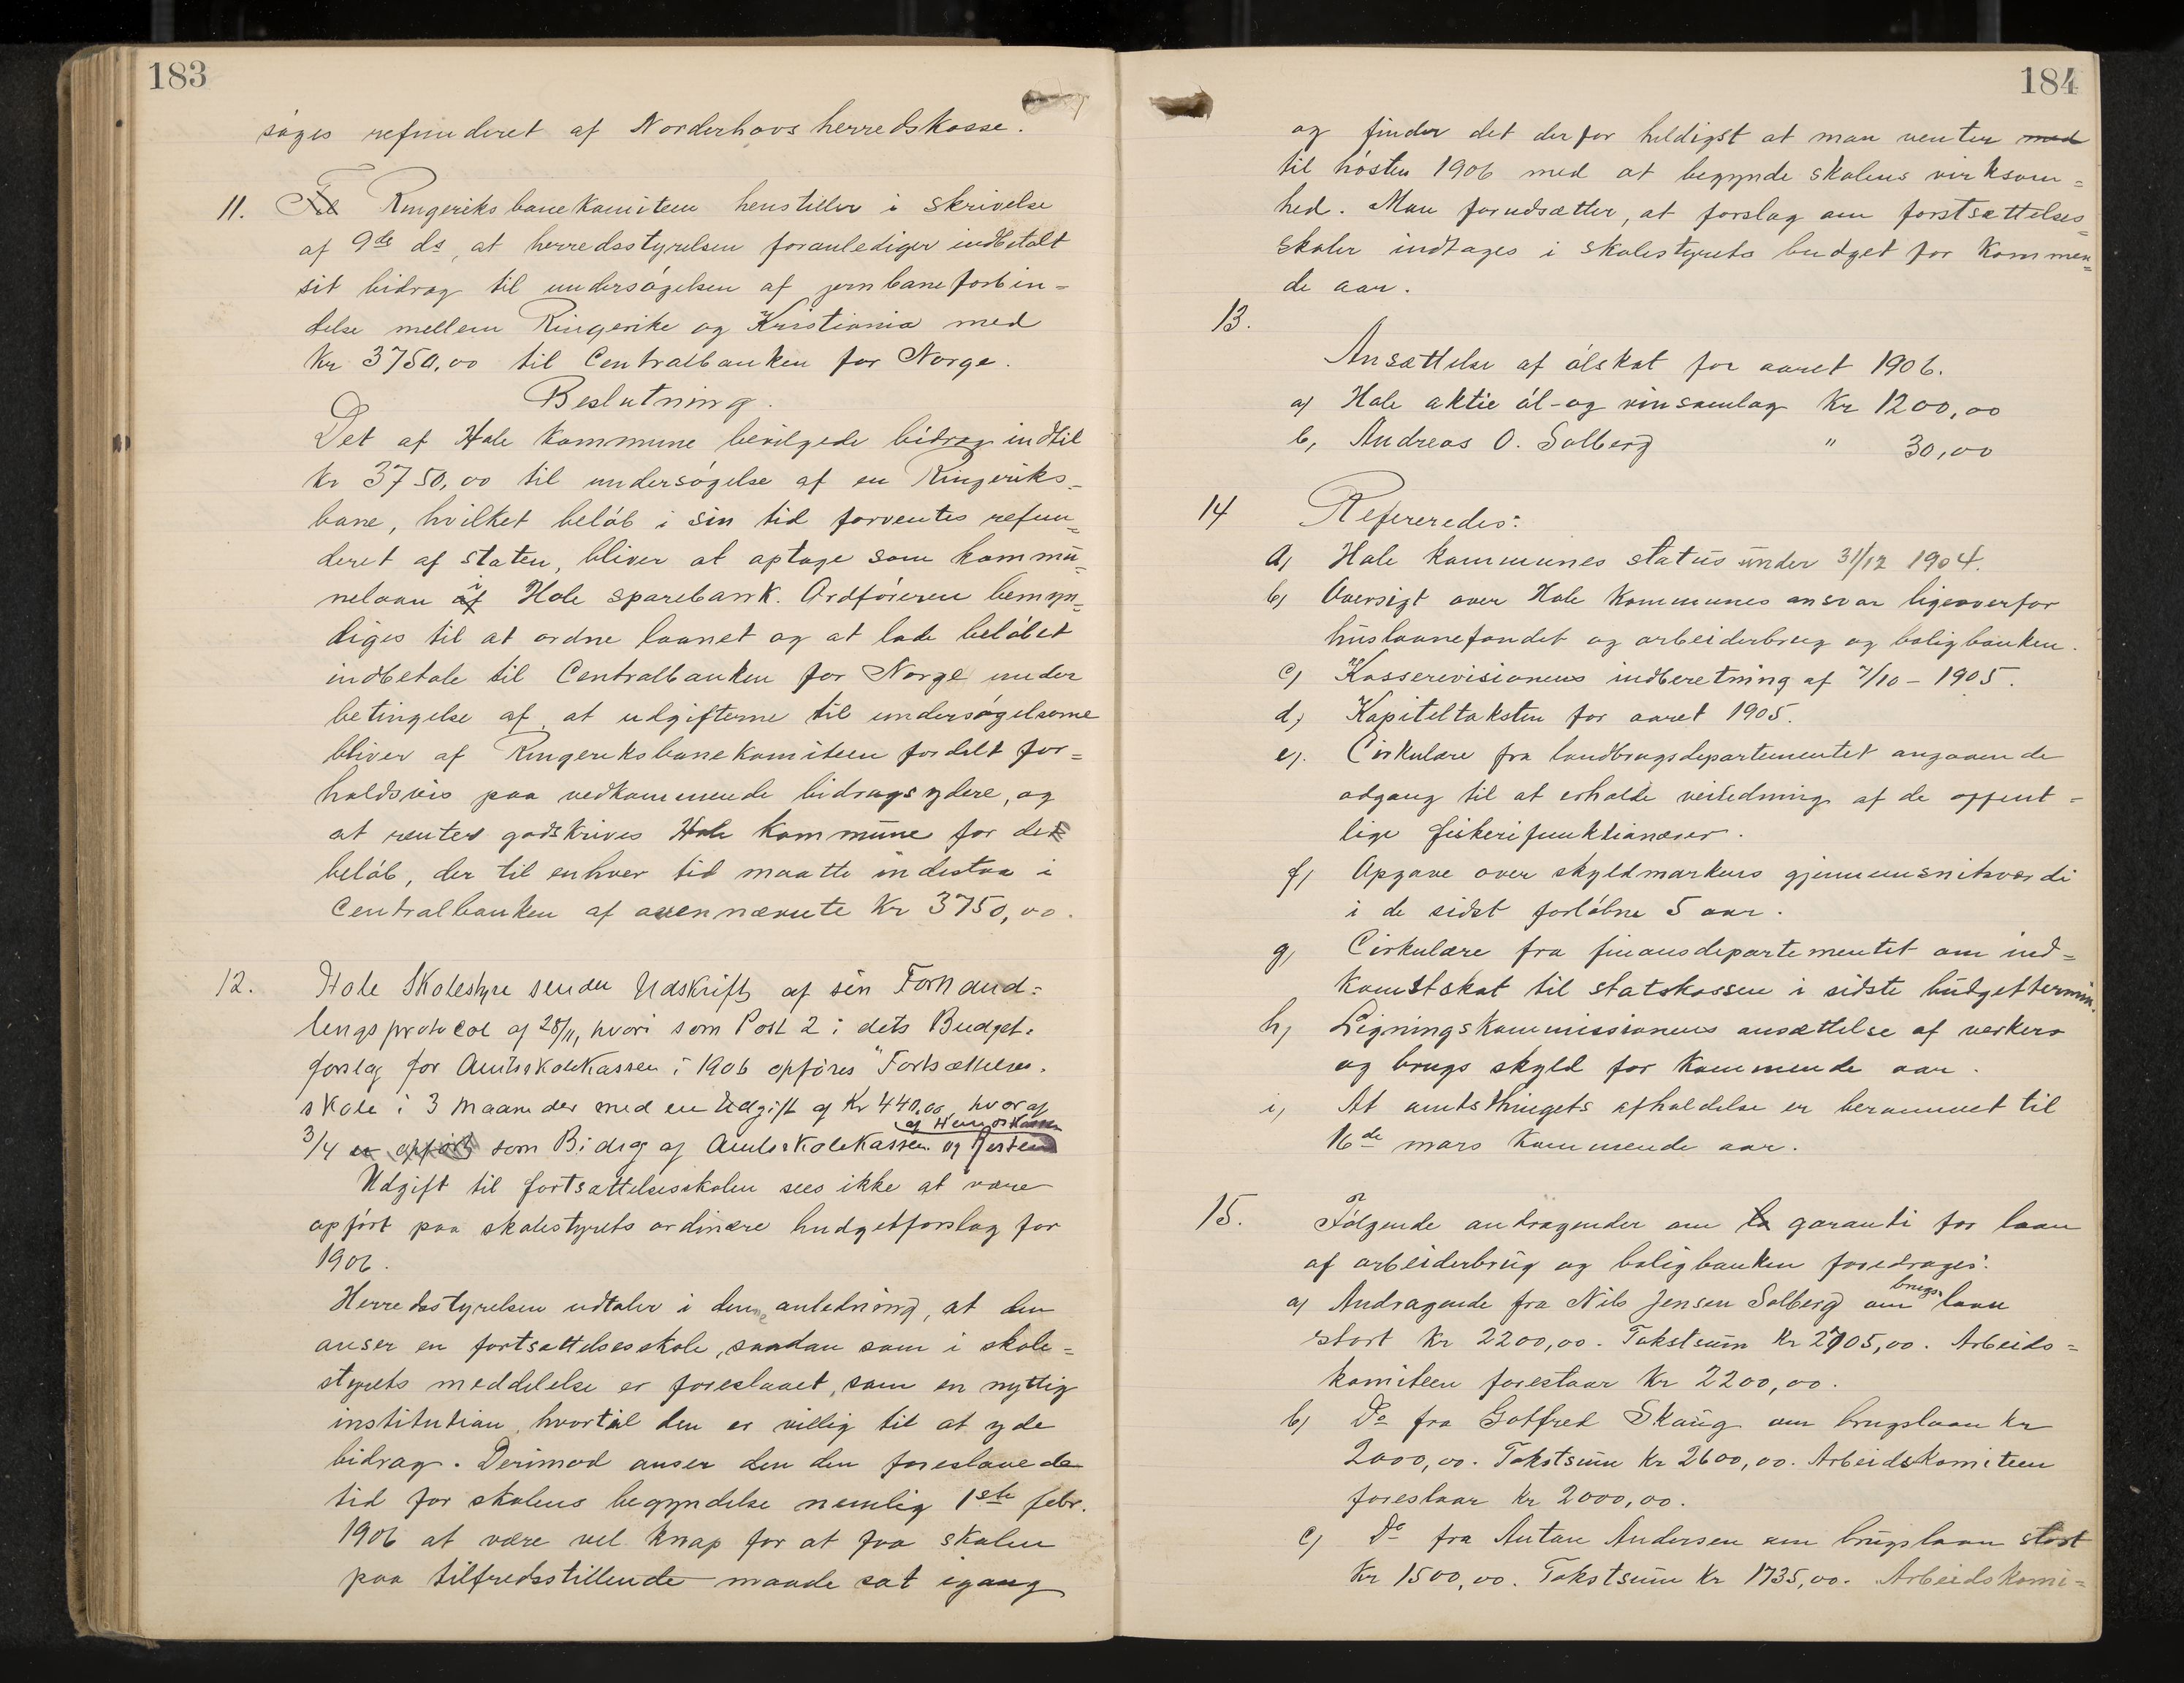 183
søges refunderet af Norderhovs herredskasse.
11. Til Ringeriksbanekomiteen henstiller i skrivelse
af 9de ds, at herredsstyrelsen foranlediger indbetalt
sit bidrag til undersøgelsen af jernbaneforbin=
delse mellem Ringerike og Kristiania med
Kr 3750,00 til Centralbanken for Norge.
Beslutning.
Det af Hole kommune bevilgede bidrag indtil
Kr 3750,00 til undersøgelse af en Ringeriks=
bane, hvilket beløb i sin tid forventes refun=
deret af staten, bliver at optage som kommu=
nelaan af i Hole sparebank. Ordføreren bemyn=
diges til at ordne laanet og at lade beløbet
indbetale til Centralbanken for Norge under
betingelse af, at udgifterne til undersøgelserne
bliver af Ringeriksbanekomiteen fordelt for=
holdsvis paa vedkommende bidragsydere, og
at renter godskrives Hole kommune for det
beløb, der til enhver tid maatte indestaa i
Centralbanken af ovennævnte Kr 3750,00.
12. Hole Skolestyre sender Udskrift af sin Forhand=
lingsprotocol af 28/11, hvori som Post 2 i dets Budget=
forslag for Amtsskolekassen i 1906 opføres "Fortsættelses=
skole i 3 Maaneder med en Udgift af Kr 440,00, hvoraf
af Herredskassen
3/4 er opført som Bidrag af Amtsskolekassen og Resten
Udgift til fortsættelsesskolen sees ikke at være
opført paa skolestyrets ordinære budgetforslag for
1906.
Herredsstyrelsen udtaler i denne anledning, at den
anser en fortsættelsesskole, saadan som i skole=
styrets meddelelse er foreslaaet, som en nyttig
institution, hvortil den er villig til at yde
bidrag. Derimod anser den den foreslaaede
tid for skolens begyndelse nemlig 1ste febr.
1906 at være vel knap for at faa skolen
paa tilfredsstillende maade sat igang
184
og finder det derfor heldigst at man venter med
til høsten 1906 med at begynde skolens virksom=
hed. Man forudsætter, at forslag om forstsættelses=
skoler indtages i skolestyrets budget for kommen=
de aar.
13.
Ansættelse af ølskat for aaret 1906.
a) Hole aktie øl- og vinsamlag Kr 1200,00
b, Andreas O. Solberg " 30,00
14 Refereredes:
a, Hole kommunes status under 31/12 1904.
b) Oversigt over Hole kommunes ansvar ligeoverfor
huslaanefondet og arbeiderbrug og boligbanken.
c) Kasserevisionens indberetning af 7/10 - 1905.
d, Kapiteltaksten for aaret 1905.
e). Cirkulære fra landbrugsdepartementet angaaende
adgang til at erholde veiledning af de offent=
lige fiskerifunktionærer.
f, Opgave over skyldmarkens gjennemsnitsværdi
i de sidst forløbne 5 aar.
g, Cirkulære fra finansdepartementet om ind=
komstskat til statskassen i sidste budgettermin.
h, Ligningskommissionens ansættelse af verkers
og brugs skyld for kommende aar.
i, At amtsthingets afholdelse er berammet til
16de mars kommende aar.
15. Følgende andragender om la garanti for laan
af arbeiderbrug og boligbanken foredrages:
brugs
a) Andragende fra Nils Jensen Solberg om laan
stort Kr 2200,00. Takstsum Kr 2705,00. Arbeids=
komiteen foreslaar Kr 2200,00.
b) Do fra Gotfred Skaug om brugslaan Kr
2000,00. Takstsum Kr 2600,00. Arbeidskomiteen
foreslaar Kr 2000,00.
c) Do fra Anton Andersen om brugslaan stort
Kr 1500,00. Takstsum Kr 1735,00. Arbeidskomi=